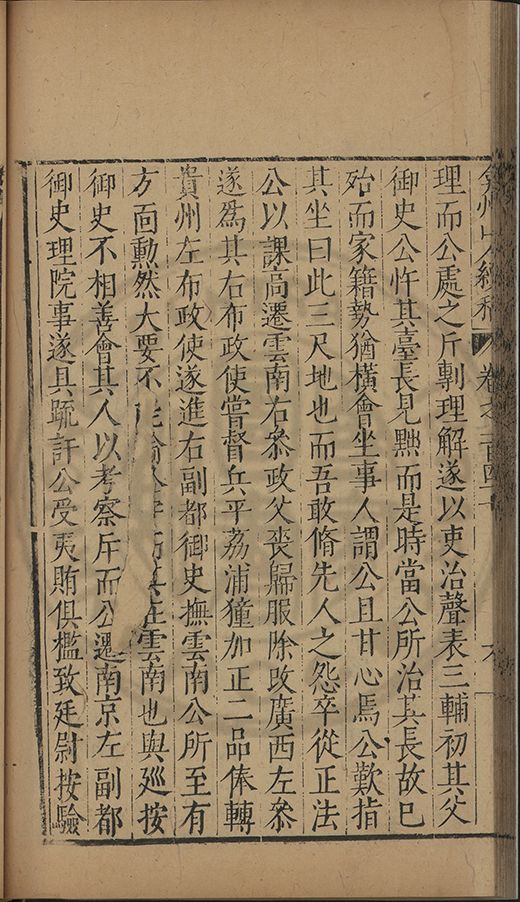 弇州山人續稿 卷之一百四十 六
理而公處之斤剸理解遂以吏治聲表三輔初其父
御史公忤其臺長見黜而是時當公所治其長故已
殆而家籍勢猶橫會坐事人謂公且甘心焉公歎指
其坐曰此三尺地也而吾敢脩先人之怨卒從正法
公以課高遷雲南右叅政父喪歸服除改廣西左叅
遂爲其右布政使嘗督兵平荔浦獞加正二品俸轉
貴州左布政使遂進右副都御史撫雲南公所至有
方面勲然大要不 在雲南也與廵按
御史不相善會其人以考察斥而公遷南京左副都
御史理院事遂具疏訐公受夷賄俱檻致廷尉按驗